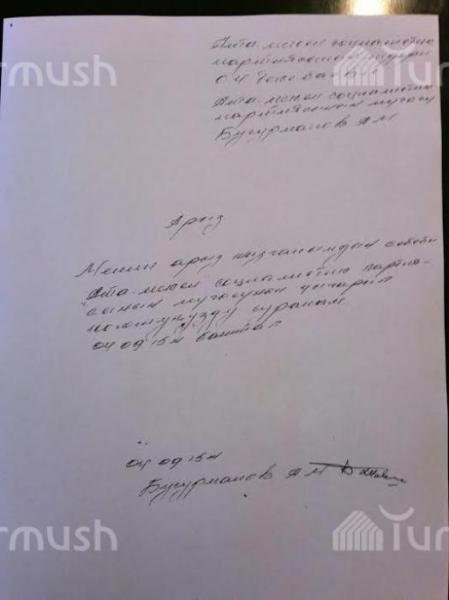 Ата-мекен социалистик
партиясынын
Ата-мекен социалистик
партиясынын мүчөсү
Бугурманов А М
Арыз
Менин арыз жазганымдын себеби
Ата-мекен социалистик партия-
сынын мүчөсүнөн чыгарып
коюшуңузду суранам
04 09 15ж баштап
04 09 15ж
Бугурманов А М
rmush
Tur
rmush
Tur